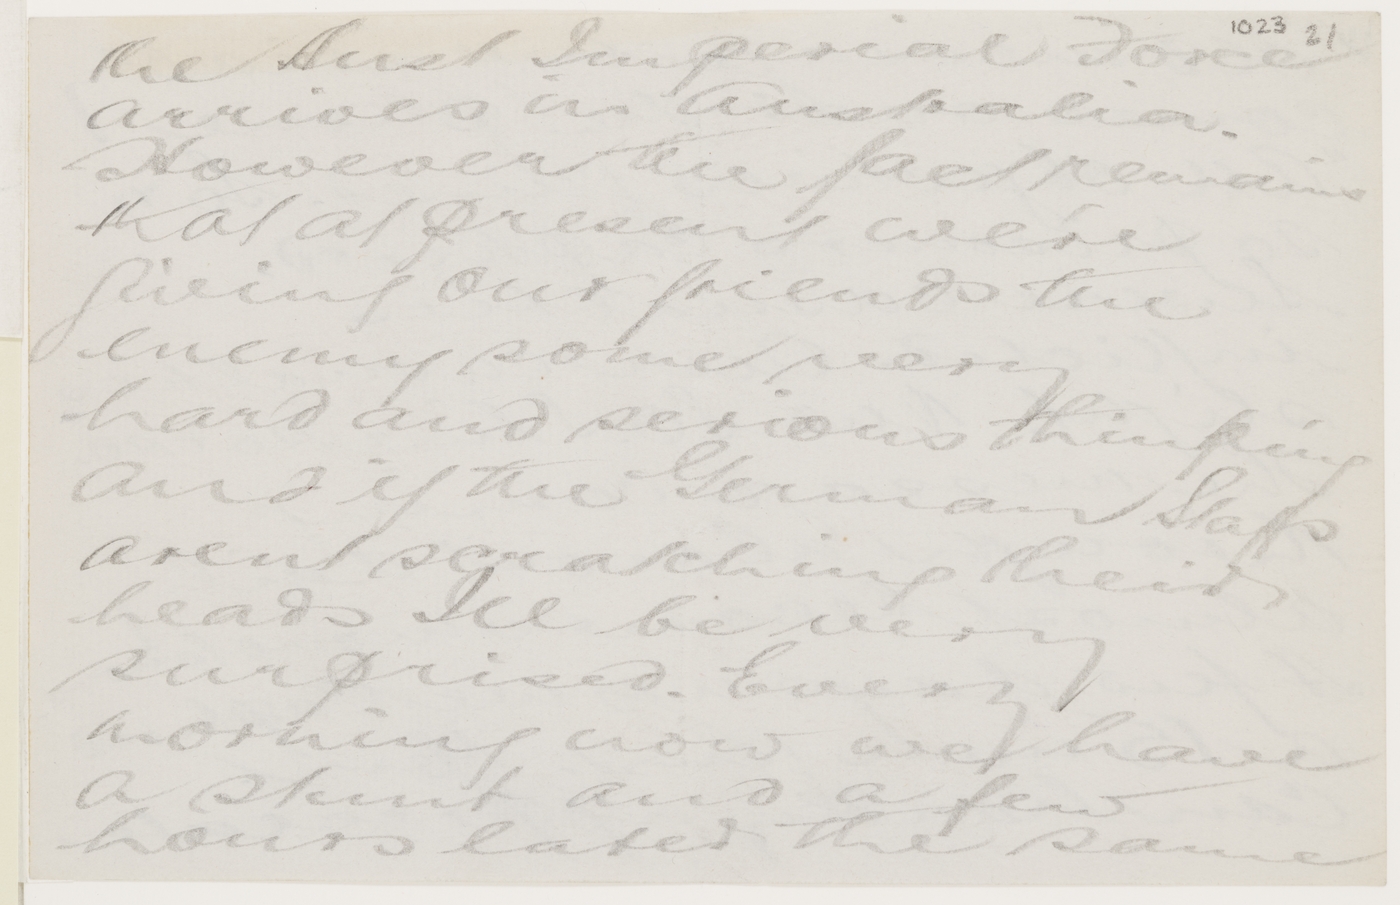 1023 21
the Aust Imperial Force
arrives in Australia.
However the fact remains
that at present we're
giving our friends the
enemy some very
hard and serious thinking
and if the German Staffs
arent scratching their
heads I'll be very
surprised. Every
morning now we have
a stunt and a few
hours later the same